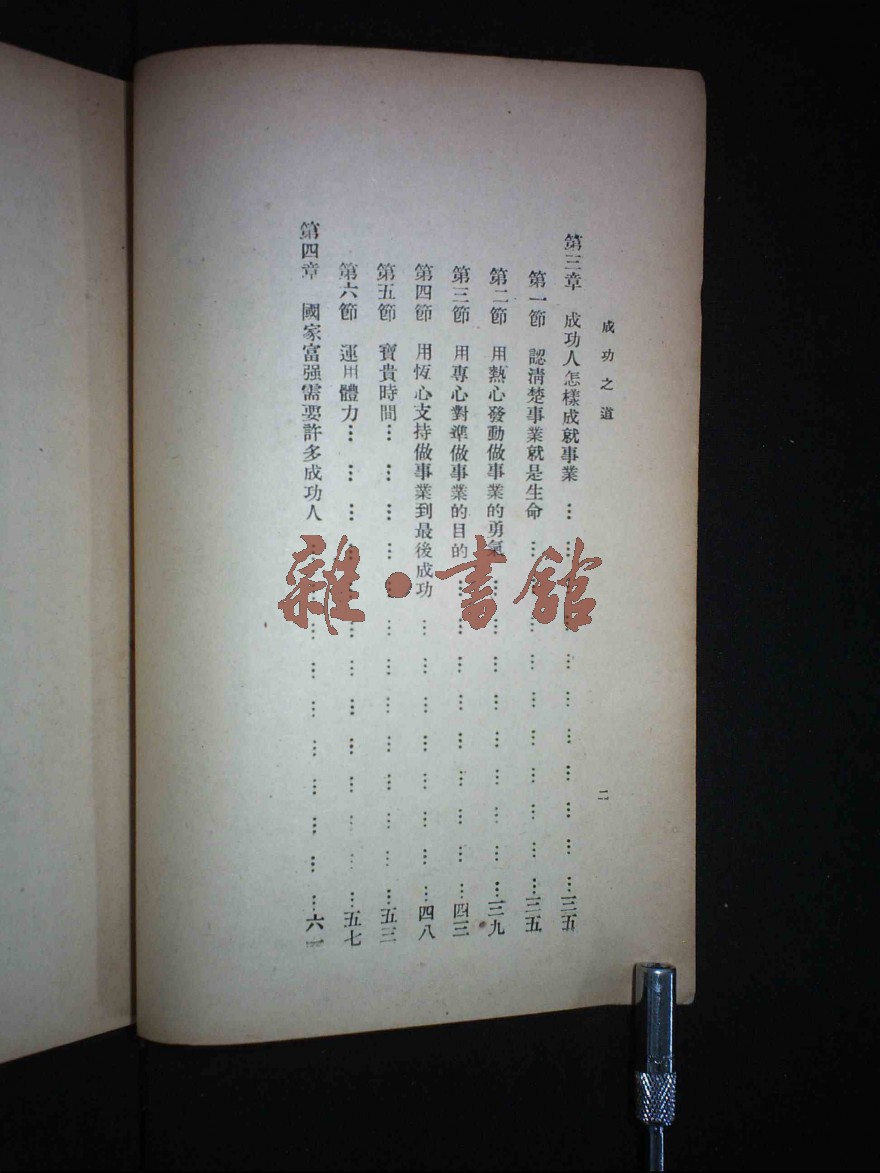 成功之道 二
第三章 成功人怎樣成就事業 … … … … … … … … … … …三五
第一節 認清楚事業就是生命 … … … … … … … … … …三五
第二節 用熱心發動做事業的勇氣 … … … … … … … … …三九
第三節 用專心對準做事業的目的 … … … … … … … … …四三
第四節 用恆心支持做事業到最後成功 … … … … … … … …四八
第五節 寶貴時間… … … … … … … … … … … … …五三
第六節 運用體力… … … … … … … … … … … … …五七
第四章 國家富强需要許多成功人 … … … … … … … … … …六一
雜·書館